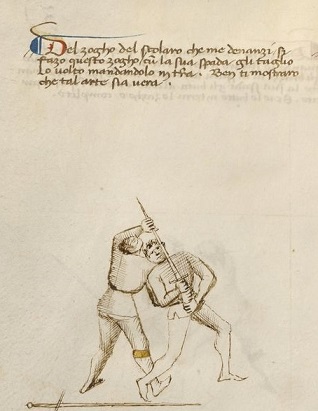 Del zogho del scolaro che me denanzi si
fazo questo zogho / cū la sua spada gli taglio
Lo volto mandandolo in tra. Ben ti mostraro
che tal arte sia vera.